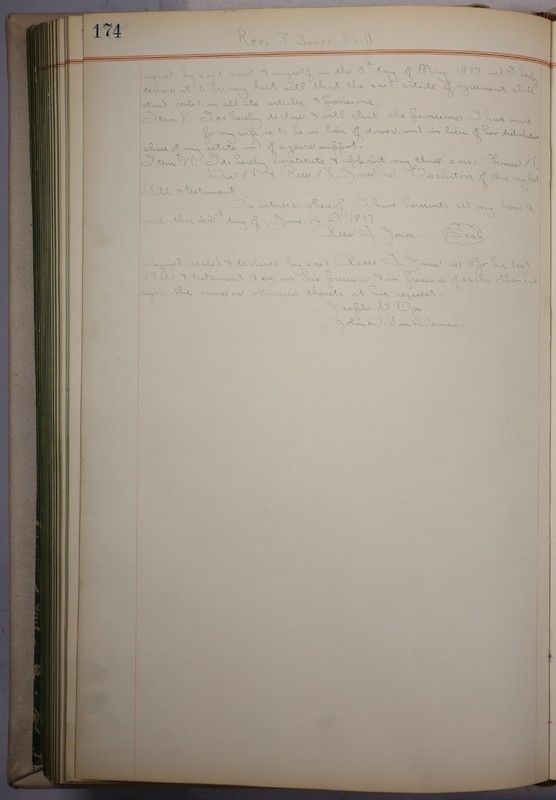 174
Rees T Jones Will
signed by said and & myself on the 8th day of May 1877 and I hereby
declare it to be my last will that the said article of agreement shall
stand valid in all its articles & provisions.
Item V. I do hereby declare & will that the provisions I have made
for my wife is to be in lieu of dower, and in lieu of her distributive
share of my estate and of a years support.
Item VI. I do hereby constitute & appoint my three sons Thomas
& Rees Jones as Executors of this my last
Will & testament
In witness whereof I have hereunto set my hand &
seal this 22nd day of June A D. 1877
Rees T Jones Seal
Signed sealed & declared by said Rees T Jones as & for his last
Will & testament & we in his presence & in presence of each other
sign the same as witnesses thereto at his request.
Joseph
John W. Van Deman.